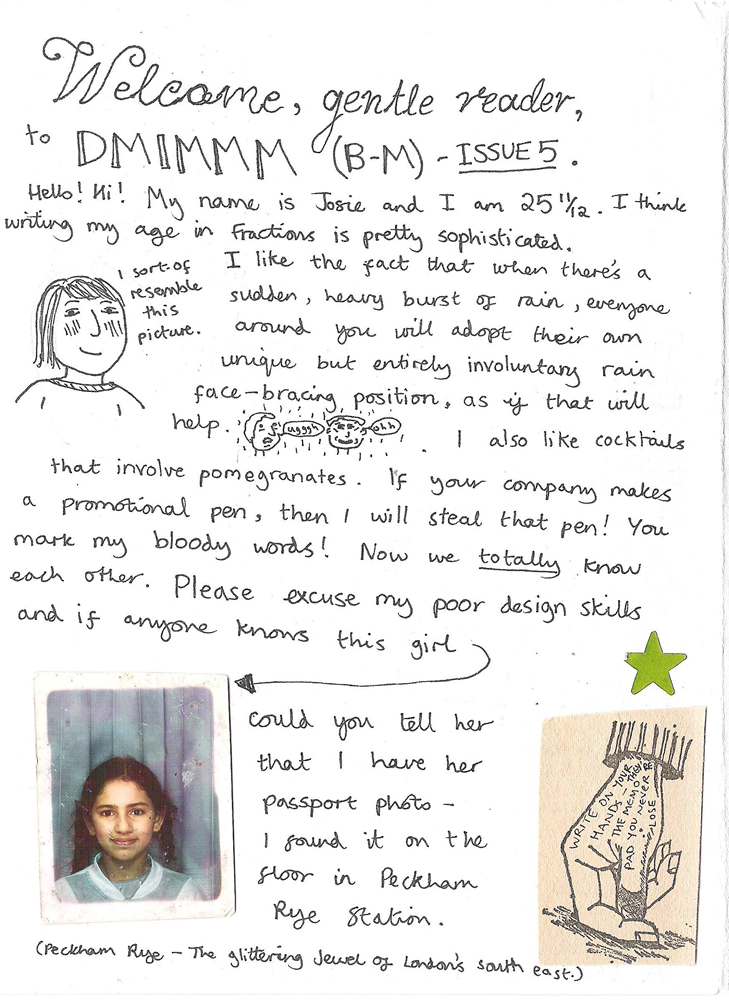 Welcome, gentle reader,
to DMIMMM (B-M) - ISSUE 5.
Hello! Hi! My name is Josie and I am 25 11/12. I think
writing my age in fractions is pretty sophisticated.
I sort of
resemble
this
picture.
I like the fact that when there's a
sudden, heavy burst of rain, everyone
around you will adopt their own
unique but entirely involuntary rain
face-bracing position, as if that will
help.
ugggh
ohh
. I also like cocktails
that involve pomegranates. If your company makes
a promotional pen, then I will steal that pen! You
mark my bloody words! Now we totally know
each other. Please excuse my poor design skills
and if anyone knows this girl
could you tell her
that I have her
passport photo -
I found it on the
floor in Peckham
Rye Station.
WRITE ON YOUR
HANDS - THEY'RE
THE MEMO
PAD YOU NEVER
LOSE
(Peckham Rye - The glittering Jewel of London's south east.)